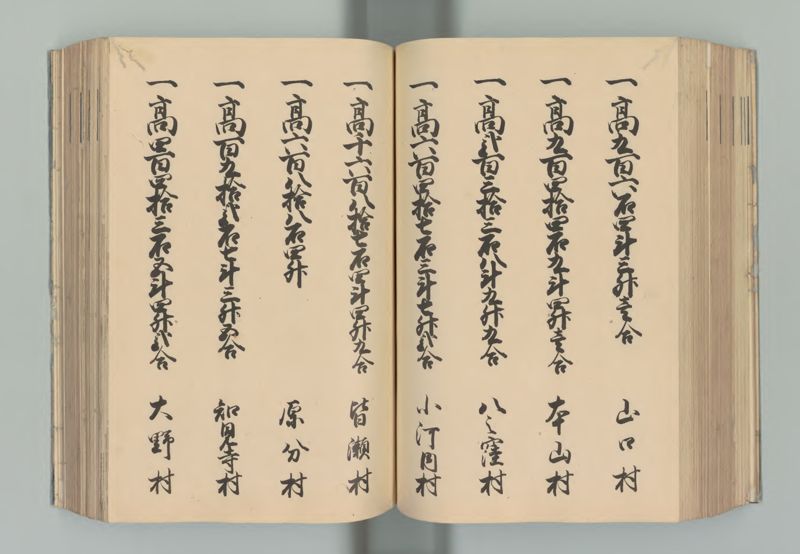 一高九百六石四斗三升壱合 山口村
一高九百四拾四石九斗四升壱合 本山村
一高弐百三拾三石八斗九升九合 八之窪村
一高六百四拾七石三斗七升弐合 小河内村
一高千六百八拾七石四斗四升九合 皆瀬村
一高六百八拾八石四升 原分村
一高百九拾弐石七斗三升五合 知見寺村
一高四百四拾三石五斗四升弐合 大野村